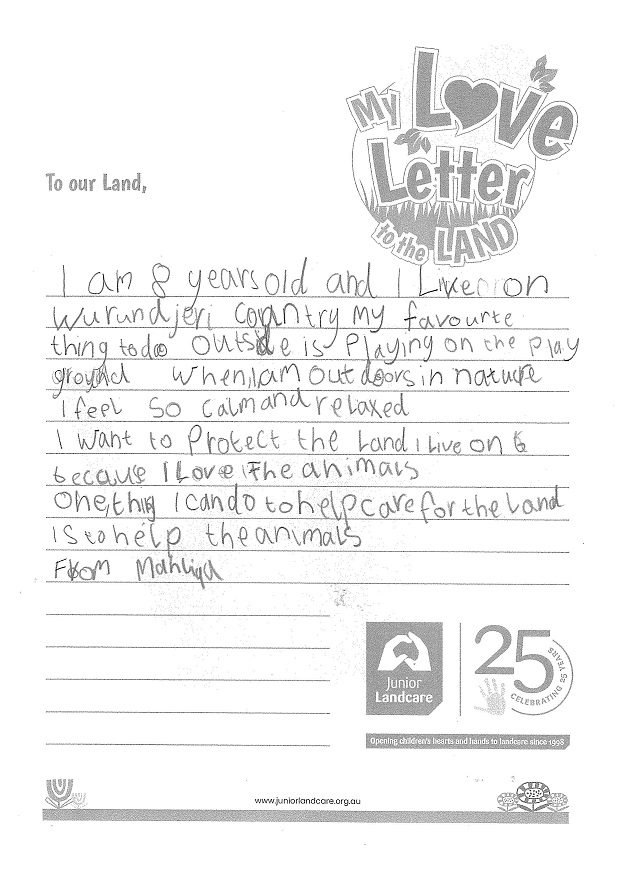 My Love
Letter
to the LAND
To our Land,
I am 8 years old and I Live on
Wurundjeri country my favourte
thing to do outside is Playing on the play
ground When I am out doors in nature
I feel so calm and relaxed
I want to Protect the Land I Live on
because I Love the animals
One thing I can do to help care for the land
is to help the animals
From
Junior
Landcare
25
CELEBRATING 25 YEARS
Opening children's hearts and hands to landcare since 1998
www.juniorlandcare.org.au